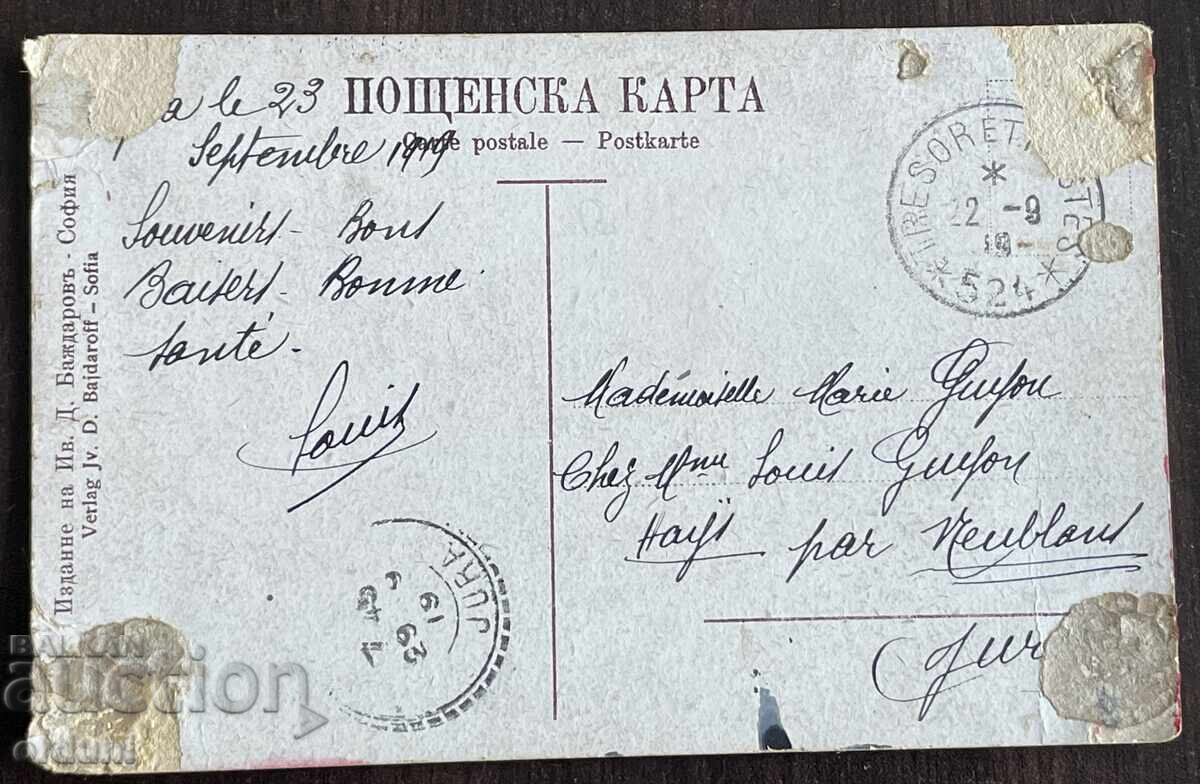 a le 23
Septembre 1919
ПОЩЕНСКА КАРТА
Carte postale — Postkarte
Souvenirs - Bons
Baisers - Bonne
Santé -
Louis
TRESOR ET POSTES
22 -9
19
* 524 *
Mademoiselle Marie Guyon
Chez Mme Louis Guyon
Hays par Neublans
Jura
JURA
19
Издание на Ив. Д. Баждаровъ - София
Verlag Jv. D. Bajdaroff – Sofia
BALKAN
auction
olduni